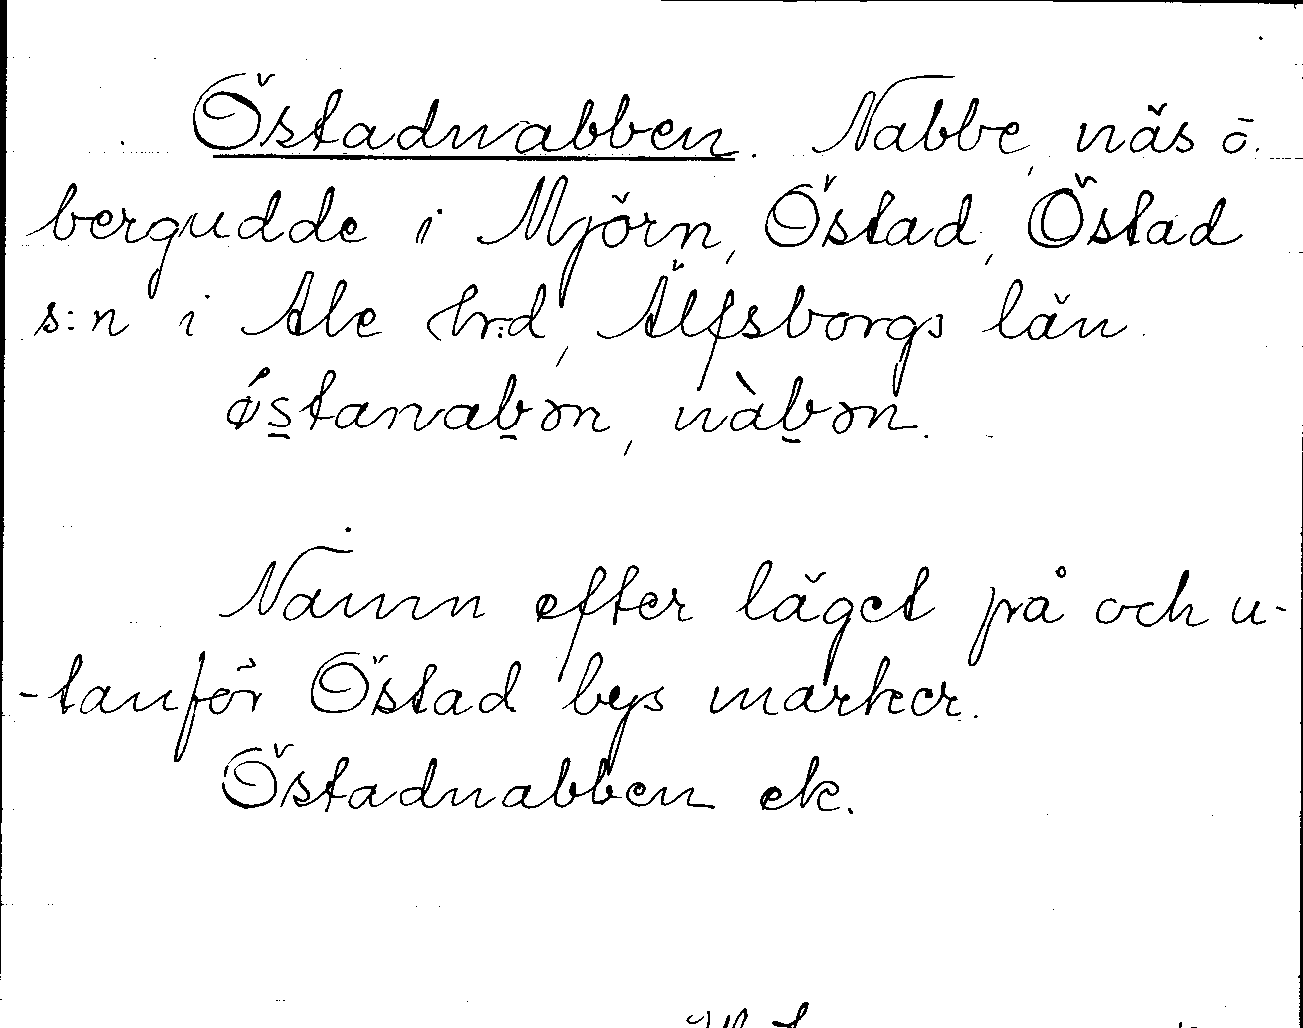 Östadnabben. Nabbe, näs o.
bergudde i Mjörn, Östad, Östad
s:n i Ale hrd, Älfsborgs län.
ǿs̲tanab̲ən, nàb̲ən.
Namn efter läget på och u-
-tanför Östad bys marker.
Östadnabben ek.